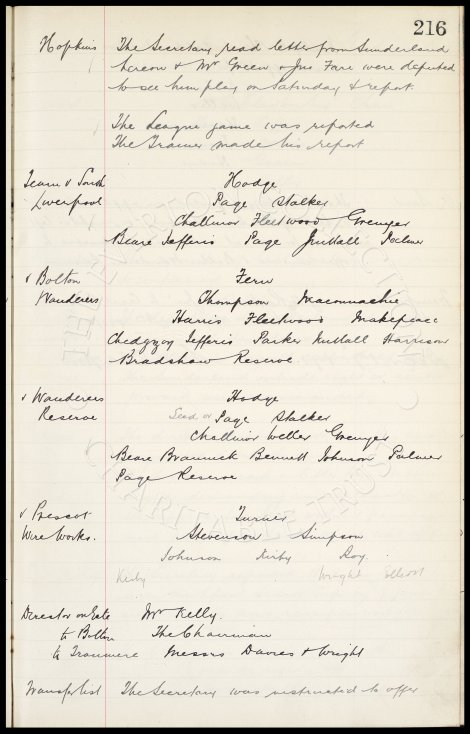 216
Hopkins The Secretary read letter from Sunderland
hereon & Mr Green & Jas Fare were deputed
to see him play on Saturday & report.
The League game was reported
The Trainer made his report
Team v South Hodge
Liverpool Page Stalker
Challinor Fleetwood Grenyer
Beare Jefferis Page Nuttall Palmer
v Bolton Fern
Wanderers Thompson Maconnachie
Harris Fleetwood Makepeace
Chedgzoy Jefferis Parker Nuttall Harrison
Bradshaw Reserve
v Wanderers Hodge
Reserve Page Stalker
Challinor Weller Grenyer
Beare Brannick Bennett Johnson Palmer
Page Reserve
v Prescot Turner
Wire Works. Stevenson Simpson
Johnson Kirby Roy
Kirby Wright Elliott
Director on Gate Mr Kelly.
to Bolton The Chairman
to Tranmere Messrs Davies & Wright
Transfer list The Secretary was instructed to offer
THE EVERTON
CHARITABLE TRUST